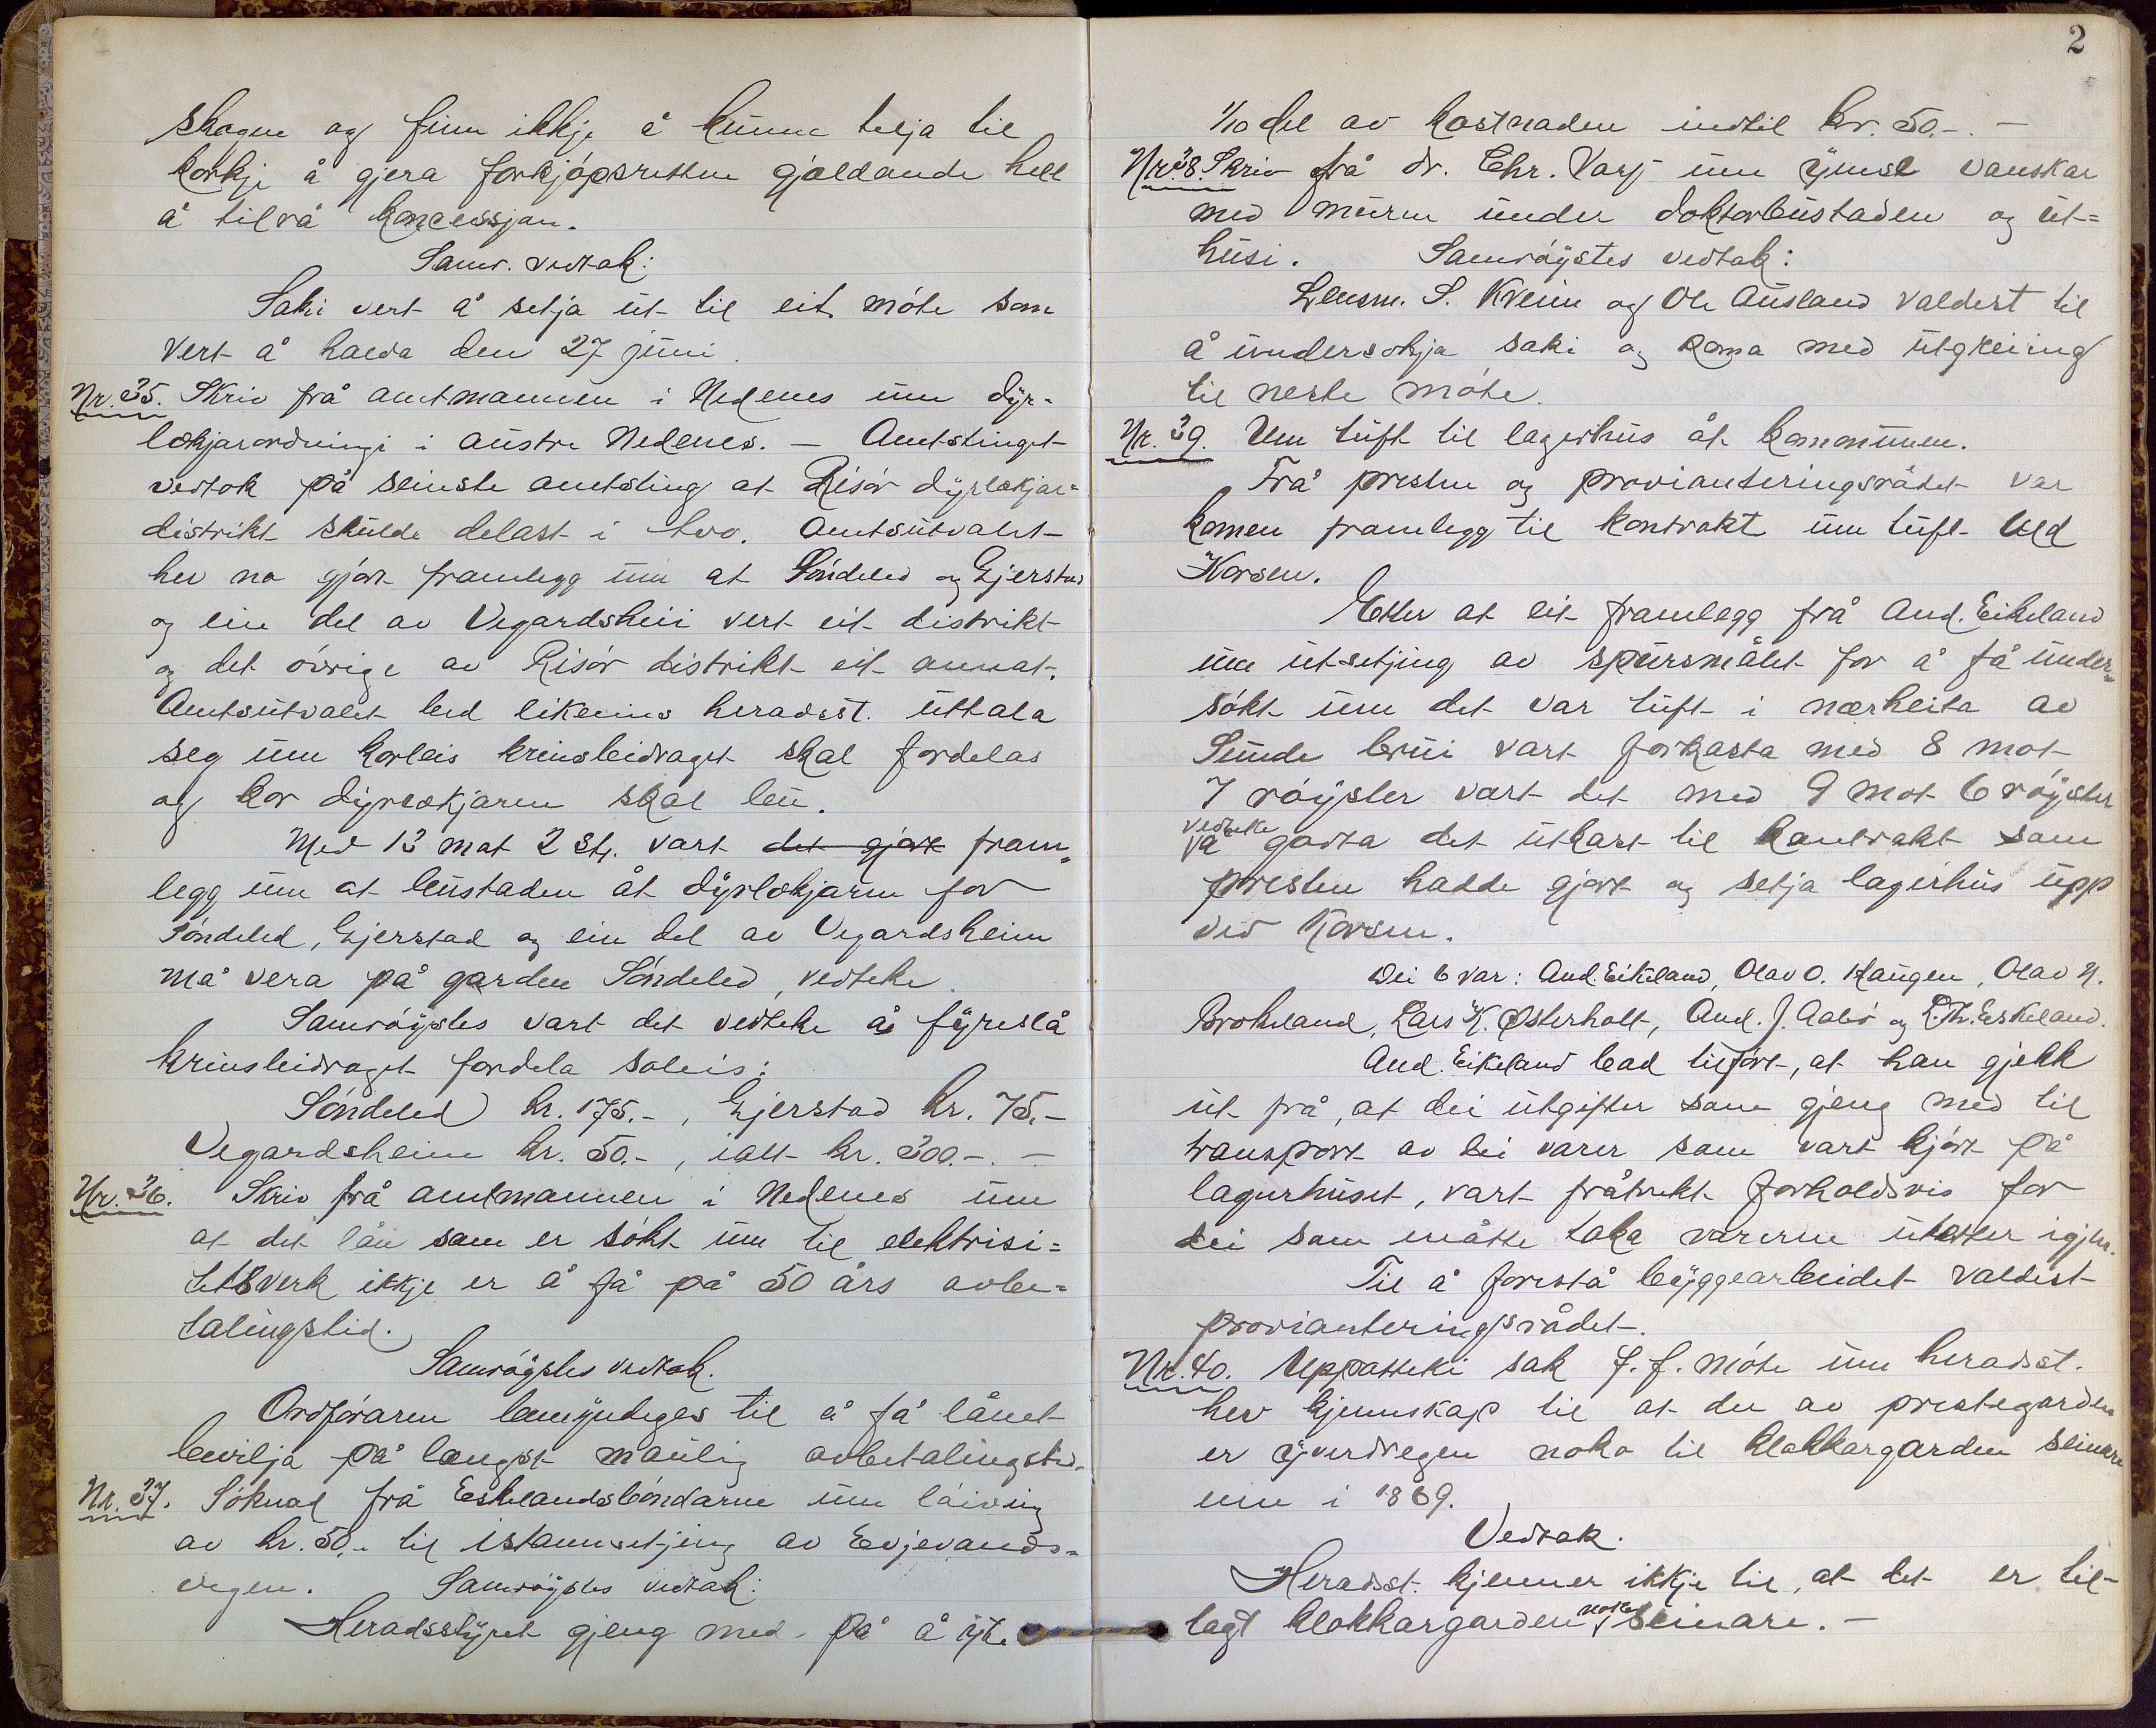 skogen og finn ikkje å kunne telja til
korkje å gjera forkjöpsretten gjældande hell
å tilrå koncessjon.
Samr. vedtak:
Saki vert å setja ut til eit möte som
vert å halda den 27 juni.
Nr. 35. Skriv frå amtmannen i Nedenes um dyr-
lækjarordningi i austre Nedenes. — Amtstinget
vedtok på seinste amtsting at Risör dyrlækjar=
distrikt skulde delast i tvo. Amtsutvalet
hev no gjort framlegg um at Söndeled og Gjerstad
og ein del av Vegardsheii vert eit distrikt
og det övrige av Risör distrikt eit annat.
Amtsutvalet bed likeeins heradsst. uttala
seg um korleis krinsbidraget skal fordelas
og kor dyrlækjaren skal bu.
Med 13 mot 2 st. vart det gjort fram=
legg um at bustaden åt dyrlækjaren for
Söndeled, Gjerstad og ein del av Vegardsheim
må vera på garden Söndeled, vedteke.
Samröystes vart det vedteke å fyreslå
krinsbidraget fordela soleis:
Söndeled kr. 175.-, Gjerstad kr. 75.-
Vegardsheim kr. 50.-, ialt kr. 300.-. —
Nr. 36. Skriv frå amtmannen i Nedenes um
at det lån som er sökt um til elektrisi=
tetsverk ikkje er å få på 50 års avbe=
talingstid.
Samröystes vedtak.
Ordföraren bemyndiges til å få lånet
bevilja på længst maulig avbetalingstid.
Nr. 37. Söknad frå Eskelandsböndarne um löiving
av kr. 50.- til istannsetjing av Evjevands=
vegen. Samröystes vedtak:
Heradsstyret gjeng med på å yte
2
1/10 del av kostnaden indtil kr. 50.-. —
Nr. 38. Skriv frå dr. Chr. Varg um ymse vanskar
med muren under doktorbustaden og ut=
husi. Samröystes vedtak:
Lensm. S. Kveim og Ole Ausland valdest til
å undersökja saki og koma med utgreiing
til neste möte.
Nr. 39. Um tuft til lagerhus åt kommunen.
Frå presten og provianteringsrådet var
komen framlegg til kontrakt um tuft ved
Korsen.
Etter at eit framlegg frå And. Eikeland
um utsetjing av spursmålet for å få under=
sökt um det var tuft i nærheita av
Sunde brui vart forkasta med 8 mot
7 röyster vart det med 9 mot 6 röyster
vedteke
godta det utkast til kontrakt som
presten hadde gjort og setja lagerhus upp
ved Korsen.
Dei 6 var: And. Eikeland, Olav O. Haugen, Olav N.
Brokeland, Lars K. Østerholt, And. J. Aabö og L. Th. Eskeland.
And. Eikeland bad tilfört, at han gjekk
ut frå, at dei utgifter som gjeng med til
transport av dei varer som vart kjört på
lagerhuset, vart fråtrekt forholdsvis for
dei som måtte taka varerne utatter igjen.
Til å forestå byggearbeidet valdest
provianteringsrådet.
Nr. 40. Uppatteki sak f. f. möte um heradsst.
hev kjennskap til at det av prestegarden
er yverdregen noko til klokkargarden seinare
enn i 1869.
Vedtak.
Heradsst. kjenner ikkje til, at det er til-
lagt klokkargarden noko seinare. —